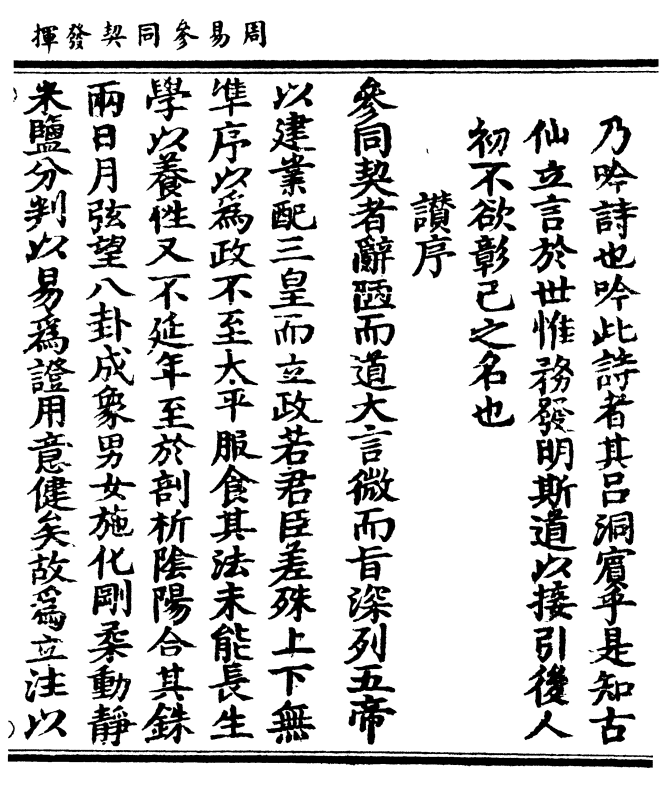 周易參同契發揮
乃吟詩也吟此詩者其呂洞賓乎是知古
仙立言於世惟務發明斯道以接引後人
初不欲彰己之名也
讃序
參同契者辭陋而道大言微而旨深列五帝
以建業配三皇而立政若君臣差殊上下無
準序以爲政不至太平服食其法未能長生
學以養性又不延年至於剖析隂陽合其銖
兩日月弦望八卦成象男女施化剛柔動靜
米鹽分判以易爲證用意健矣故爲立注以